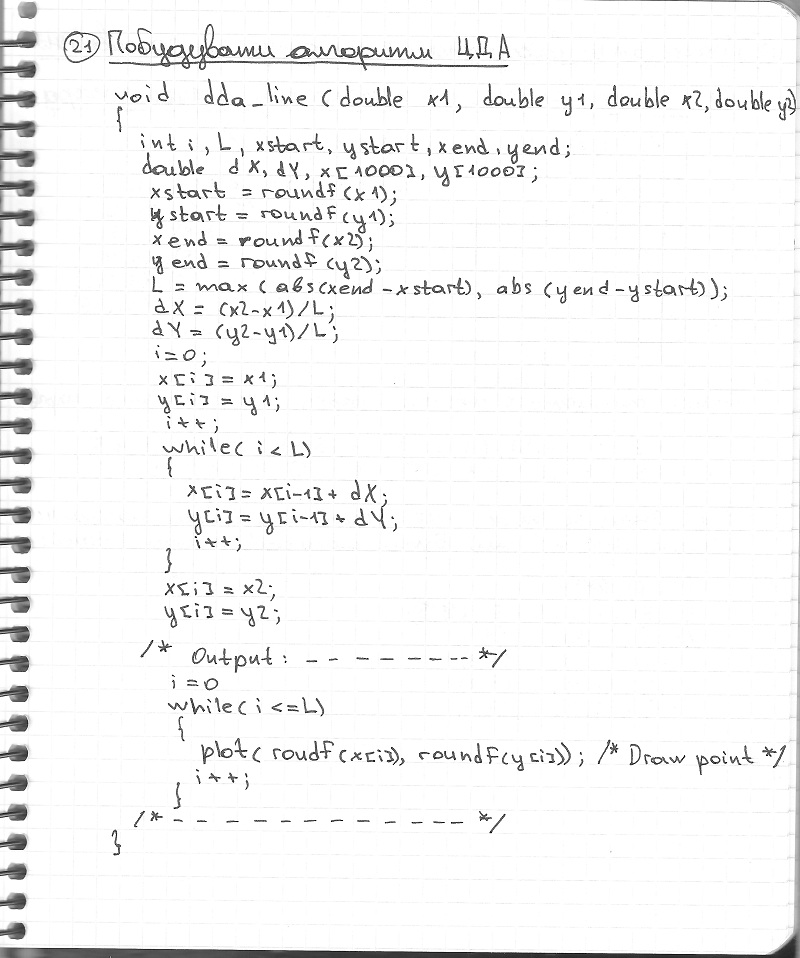 21 Побудувати алгоритм ЦДА
void dda_line (double x1, double y1, double x2, double y2)
{
int i, L, xstart, ystart, xend, yend;
double dX, dY, x[1000], y[1000];
xstart = roundf(x1);
ystart = roundf(y1);
xend = roundf(x2);
yend = roundf(y2);
L = max(abs(xend-xstart), abs(yend-ystart));
dX = (x2-x1)/L;
dY = (y2-y1)/L;
i=0;
x[i] = x1;
y[i] = y1;
i++;
while( i < L)
{
x[i] = x[i-1] + dX;
y[i] = y[i-1] + dY;
i++;
}
x[i] = x2;
y[i] = y2;
/* Output: - - - - - - - -- */
i = 0
while( i <= L)
{
plot( roudf(x[i]), roundf(y[i])); /* Draw point */
i++;
}
/* - - - - - - - - - - - - - */
}